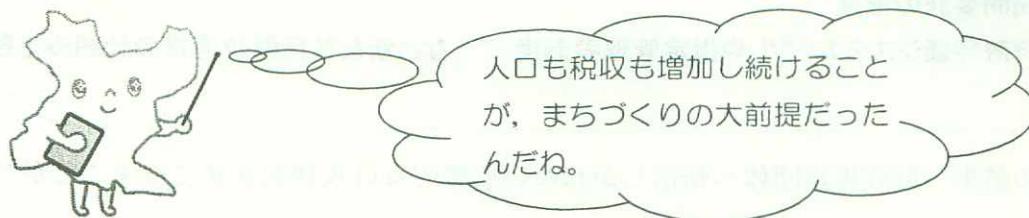 人口も税収も増加し続けること
が，まちづくりの大前提だった
んだね。